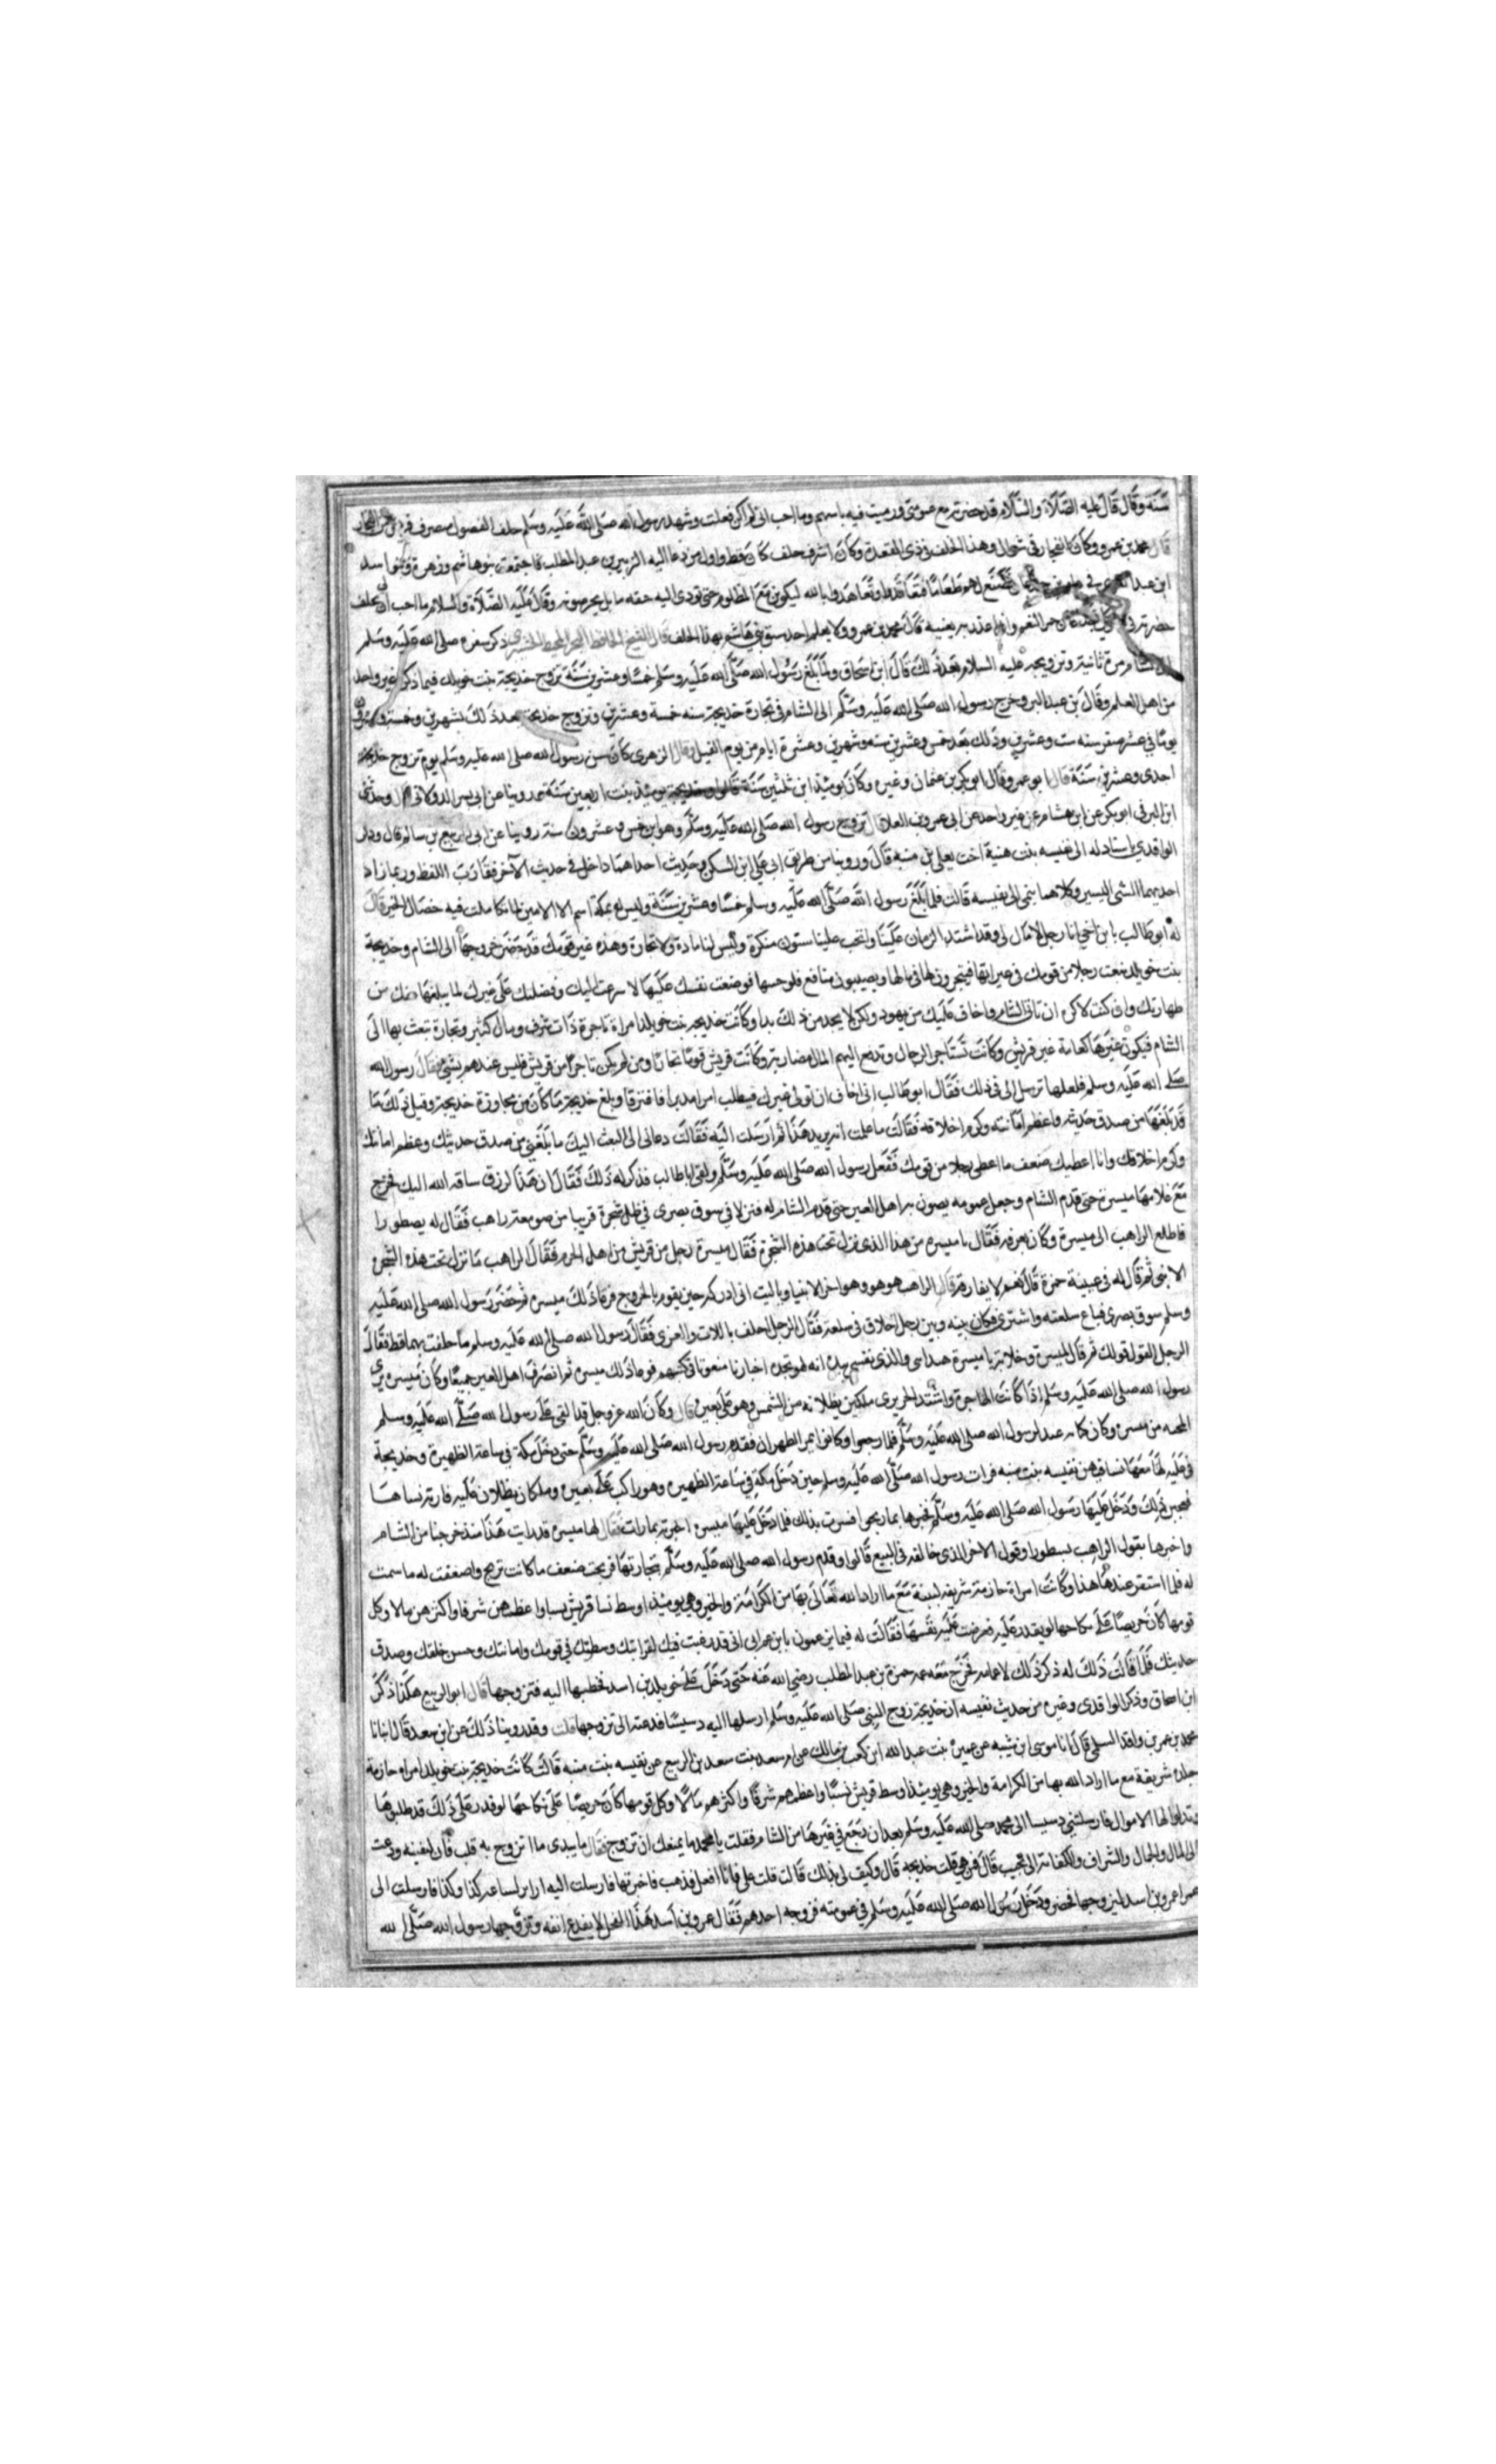 سنة وقال قال عليه الصلاة والسلام قد حضرته مع عمومتي ورميت فيه باسهم وما احب اني لم اكن فعلت وشهد رسول الله صلى الله عليه وسلم حلف الفضول منصرف قريش من الفجار
قال محمد بن عمرو وكان الفجار في شوال وهذا الحلف في ذي القعدة وكان اشرف حلف كان قط واول من دعا اليه الزبير بن عبد المطلب فاجتمعت بنو هاشم وزهرة وبنوا اسد
ابن عبد العزى في دار بن جدعان فصنع لهم طعاما فتعاقدوا وتعاهدوا بالله ليكونن مع المظلوم حتى تودى اليه حقه ما بل بحر صوفه وقال عليه الصلاة والسلام ما احب ان بحلف
حضرته في حمر النعم واني اغدر به يعنيه قال محمد بن عمرو ولا يعلم احد سبق بني هاشم بهذا الحلف قال الشيخ الحافظ ذكر سفره صلى الله عليه وسلم
الى الشام مرة ثانية وتزويجه عليه السلام بعد ذلك قال ابن اسحاق ولما بلغ رسول الله صلى الله عليه وسلم خمسا وعشرين سنة تزوج خديجة بنت خويلد فيما ذكر غير واحد
من اهل العلم وقال بن عبد البر وخرج رسول الله صلى الله عليه وسلم الى الشام في تجارة خديجة سنه خمسة وعشرين وتزوج خديجة بعد ذلك بشهرين وخمسة وعشرين
يوما في عشر صفر سنه ست وعشرين وذلك بعد خمس وعشرين سنه وشهرين وعشرة ايام من يوم الفيل وقال الزهرى كان سن رسول الله صلى الله عليه وسلم يوم تزوج خديجة
احدى وعشرين سنة قال ابو عمر وقال ابو بكر بن عثمان وغيره وكان يومئذ ابن ثلثين سنة قالوا وخديجة يومئذ بنت اربعين سنة روينا عن ابى بسر الدولابي قال وحدثني
ابن البرقي ابو بكر عن ابن هشام عن غير واحد عن ابى عمرو بن العلا قال تزوج رسول الله صلى الله عليه وسلم وهو ابن خمس وعشرون سنة روينا عن ابى الربيع بن سالم قال وذكر
الواقدي باسناد له الى نفيسه بنت منية اخت يعلى بن منيه قال وروينا من طريق ابى علي ابن السكن وحديث احدهما داخل في حديث الآخر فتقارب اللفظ وربما زاد
احدهما الشي اليسير وكلاهما ينمى الى نفيسه قالت فلما بلغ رسول الله صلى الله عليه وسلم خمسا وعشرين سنة وليس له بمكة اسم الا الامين لما تكاملت فيه خصال الخير قال
له ابو طالب يا بن اخي انا رجل لا مال لي وقد اشتد الزمان علينا والحت علينا سنون منكرة وليس لنا مادة ولا تجارة وهذه عير قومك قد حضر خروجها الى الشام وخديجة
بنت خويلد تبعث رجلا من قومك في عيراتها فيتجرون لها في مالها ويصيبون منافع فلو جيتها فوضعت نفسك عليها لاسرعت اليك وفضلتك على غيرك لما يبلغها عنك من
طهارتك واني كنت لاكره ان تاتي الشام واخاف عليك من يهود ولكن لا يجد من ذلك بدا وكانت خديجه بنت خويلد امراة تاجرة ذات شرف ومال كثير وتجارة تبعث بها الى
الشام فيكون عيرها كعامة عير قريش وكانت تستاجر الرجال وتدفع اليهم المال مضاربة وكانت قريش قوما تجارا ومن لم يكن تاجرا من قريش فليس عندهم بشئ فقال رسول الله
صلى الله عليه وسلم فلعلها ترسل الى في ذلك فقال ابو طالب انى اخاف ان تولى غيرك فيطلب امرا مدبرا فافترقا وبلغ خديجة ما كان من محاورة خديجة وقبل ذلك ما
قد بلغها من صدق حديثه واعظم امانته وكرم اخلاقه فقالت ما علمت انه يريد هذا ثم ارسلت اليه فقالت دعاني الى البعث اليك ما بلغني من صدق حديثك وعظم امانتك
وكرم اخلاقك وانا اعطيك ضعف ما اعطى رجلا من قومك ففعل رسول الله صلى الله عليه وسلم ولقى ابا طالب فذكر له ذلك فقال ان هذا لرزق ساقه الله اليك فخرج
مع غلامها ميسرة حتى قدم الشام وجعل عمومه يوصون به اهل العير حتى قدم الشام له فنزلا في سوق بصرى في ظل شجرة قريبا من صومعة راهب فقال له يصطورا
فاطلع الراهب الى ميسرة وكان يعرفه فقال يا ميسره من هذا الذى نزل تحت هذه الشجرة فقال ميسرة رجل من قريش من اهل الحرم فقال الراهب ما نزل تحت هذه الشجرة
الا نبي ثم قال له في عينيه حمرة قال نعم لا يفارقه قال الراهب هو هو وهو اخر الانبيا ويا ليت انى ادركه حين يقوم بالخروج فوعا ذلك ميسره ثم حضر رسول الله صلى الله عليه
وسلم سوق بصرى فباع سلعته واشترى فكان بينه وبين رجل اختلاق في سلعه فقال الرجل احلف باللات والعزى فقال رسول الله صلى الله عليه وسلم ما حلفت بهما قط فقال
الرجل القول قولك ثم قال لميسرة وخلا به يا ميسرة هذا نبي والذى نفسي بيده انه لهو تجده اخبارنا منعوتا في كتبهم فوعا ذلك ميسره ثم انصرف اهل العير جميعا وكان ميسره يرى
رسول الله صلى الله عليه وسلم اذا كانت الهاجرة واشتد الحر يرى ملكين يظلانه من الشمس وهو على بعيره قال وكان الله عز وجل قد القى على رسول الله صلى الله عليه وسلم
المحبه من ميسره وكان كانه عبد لرسول الله صلى الله عليه وسلم فلما رجعوا وكانوا بمر الظهران فقدم رسول الله صلى الله عليه وسلم حتى دخل مكة في ساعة الظهيرة وخديجة
في علية لها معها نسا فيهن نفيسه بنت منبه فرات رسول الله صلى الله عليه وسلم حين دخل مكة في ساعة الظهيره وهو راكب على بعيره وملكان يظلان عليه فارته نساها
فعجبن لذلك ودخل عليها رسول الله صلى الله عليه وسلم فخبرها بما ربحوا فسرت بذلك فلما دخل عليها ميسره اخبرته بما رات فقال لها ميسره قد رايت هذا منذ خرجنا من الشام
واخبرها بقول الراهب نسطورا وقول الاخر الذى خالفه في البيع قالوا وقدم رسول الله صلى الله عليه وسلم بتجارتها فربحت ضعف ما كانت تربح واضعفت له ما سمت
له فلما استقر عندها هذا وكانت امراة حازمة شريفه لبيبة مع ما اراد الله تعالى بها من الكرامة والخير وهي يومئذ اوسط نسا قريش نسبا واعظمهن شرفا واكثرهن مالا وكل
قومها كان حريصا على نكاحها لو يقدر عليه فعرضت عليه نفسها فقالت له فيما يزعمون يا بن عم انى قد رغبت فيك لقرابتك وسطتك في قومك وامانتك وحسن خلقك وصدق
حديثك فلما قالت ذلك له ذكر ذلك لاعمامه فخرج معه عمه حمزة بن عبد المطلب رضي الله عنه حتى دخل على خويلد بن اسد فخطبها اليه فتزوجها قال ابو الربيع هكذا ذكر
ابن اسحاق وذكر الواقدى وغيره من حديث نفيسه ان خديجة زوج النبي صلى الله عليه وسلم ارسلها اليه دسيسا فدعته الى تزوجها قلت وقد روينا ذلك عن ابن سعد قال انبانا
محمد بن عمر بن واقد السلمي قال انا موسى ابن شيبه عن عميرة بنت عبد الله ابن كعب بن مالك عن ام سعد بنت سعد بن الربيع عن نفيسه بنت منبه قالت كانت خديجة بنت خويلد امراه حازمة
جلده شريفة مع ما اراد الله بها من الكرامة والخير وهي يومئذ اوسط قريش نسبا واعظمهم شرفا واكثرهم مالا وكل قومها كان حريصا على نكاحها لو قدر على ذلك قد طلبوها
وبذلوا لها الاموال فارسلتني دسيسا الى محمد صلى الله عليه وسلم بعد ان رجع في عيرها من الشام فقلت يا محمد ما يمنعك ان تزوج فقال ما بيدى ما اتزوج به قلت فان كفيته ودعيت
الى المال والجمال والشراف والكفاة الا تجيب قال فمن هي قلت خديجه قال وكيف لي بذلك قالت قلت علي فانا افعل فذهب فاخبرتها فارسلت اليه ان ايت لساعة كذا وكذا فارسلت الى
عمها عمرو بن اسد ليزوجها فحضر ودخل رسول الله صلى الله عليه وسلم في عمومته فزوجه احدهم فقال عمرو بن اسد هذا الفحل لا يقدع انفه وتزوجها رسول الله صلى الله